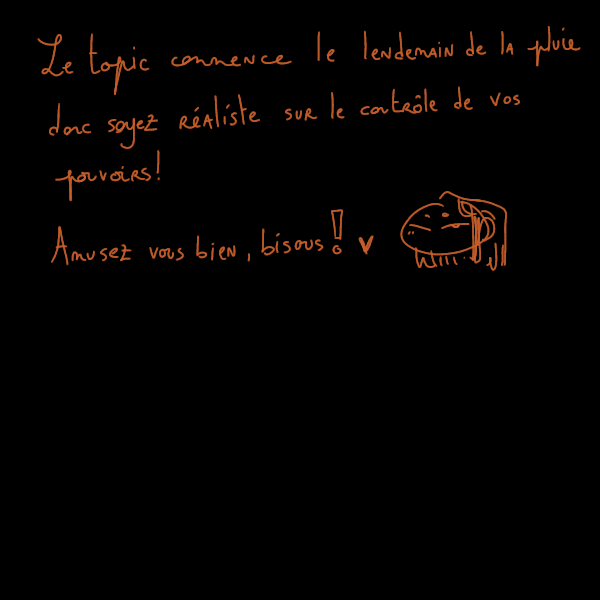 Le topic commence le lendemain de la pluie
donc soyez réaliste sur le contrôle de vos
pouvoirs!
Amusez vous bien, bisous! ♥